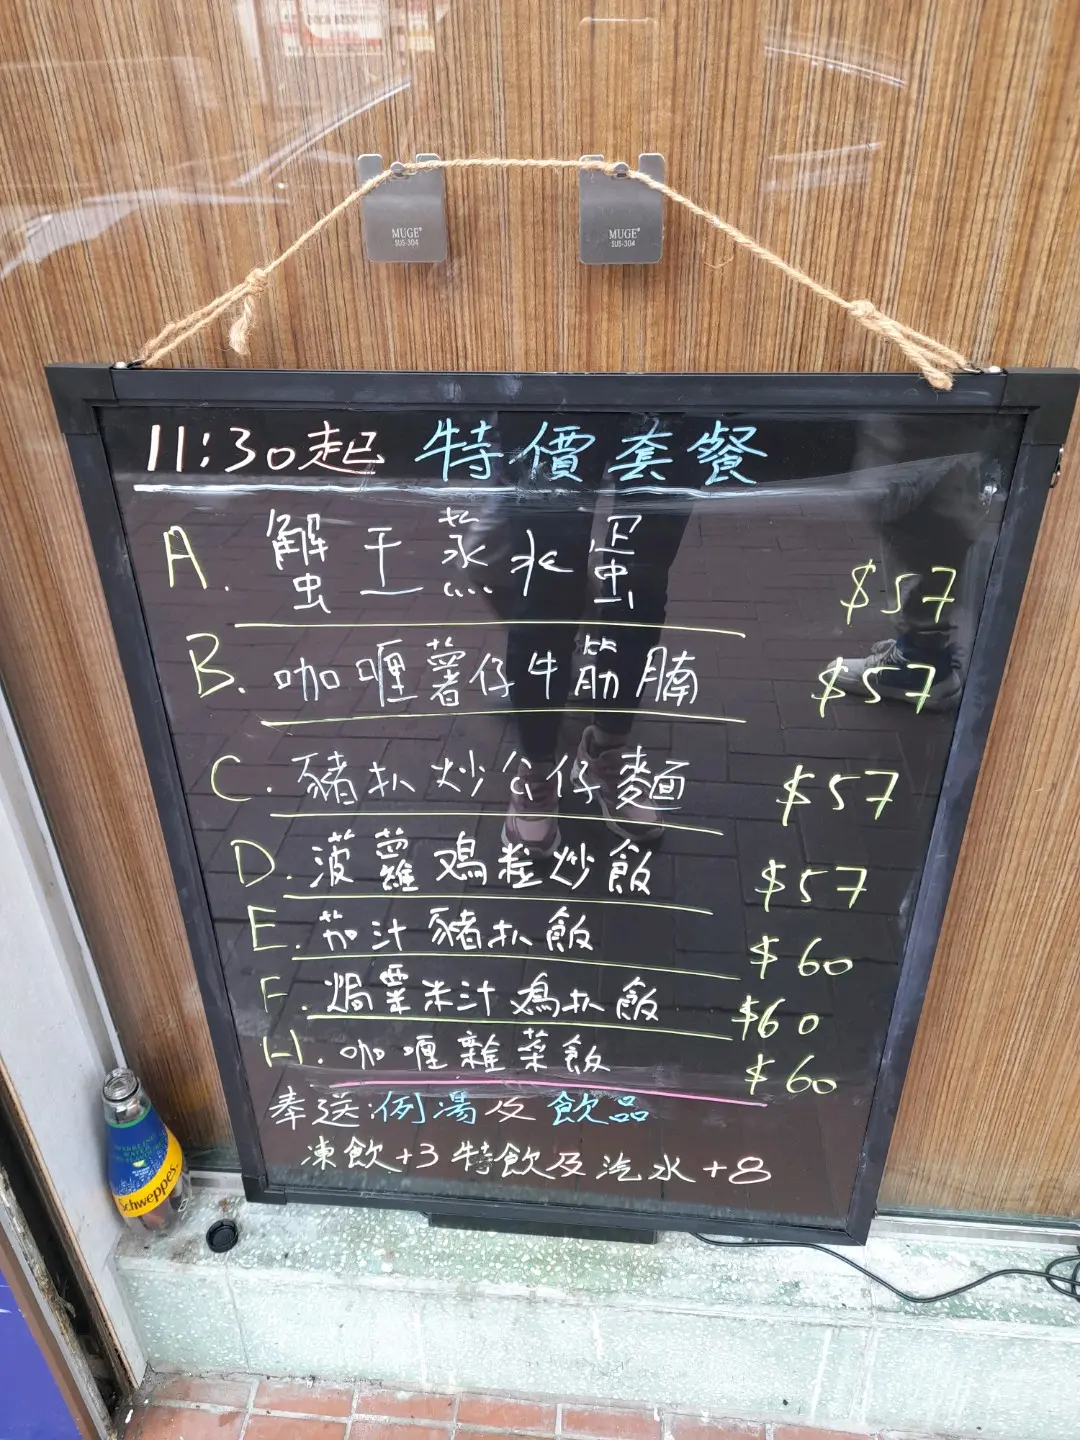 MUGE®
SUS-304
MUGE®
SUS-304
11:30起 特價套餐
A. 蟹王蒸水蛋 $57
B. 咖喱薯仔牛筋腩 $57
C. 豬扒炒公仔麵 $57
D. 菠蘿鸡粒炒飯 $57
E. 茄汁豬扒飯 $60
F. 焗粟米汁鸡扒飯 $60
H. 咖喱雜菜飯 $60
奉送:例湯及飲品
凍飲+3 特飲及汽水+8
Schweppes